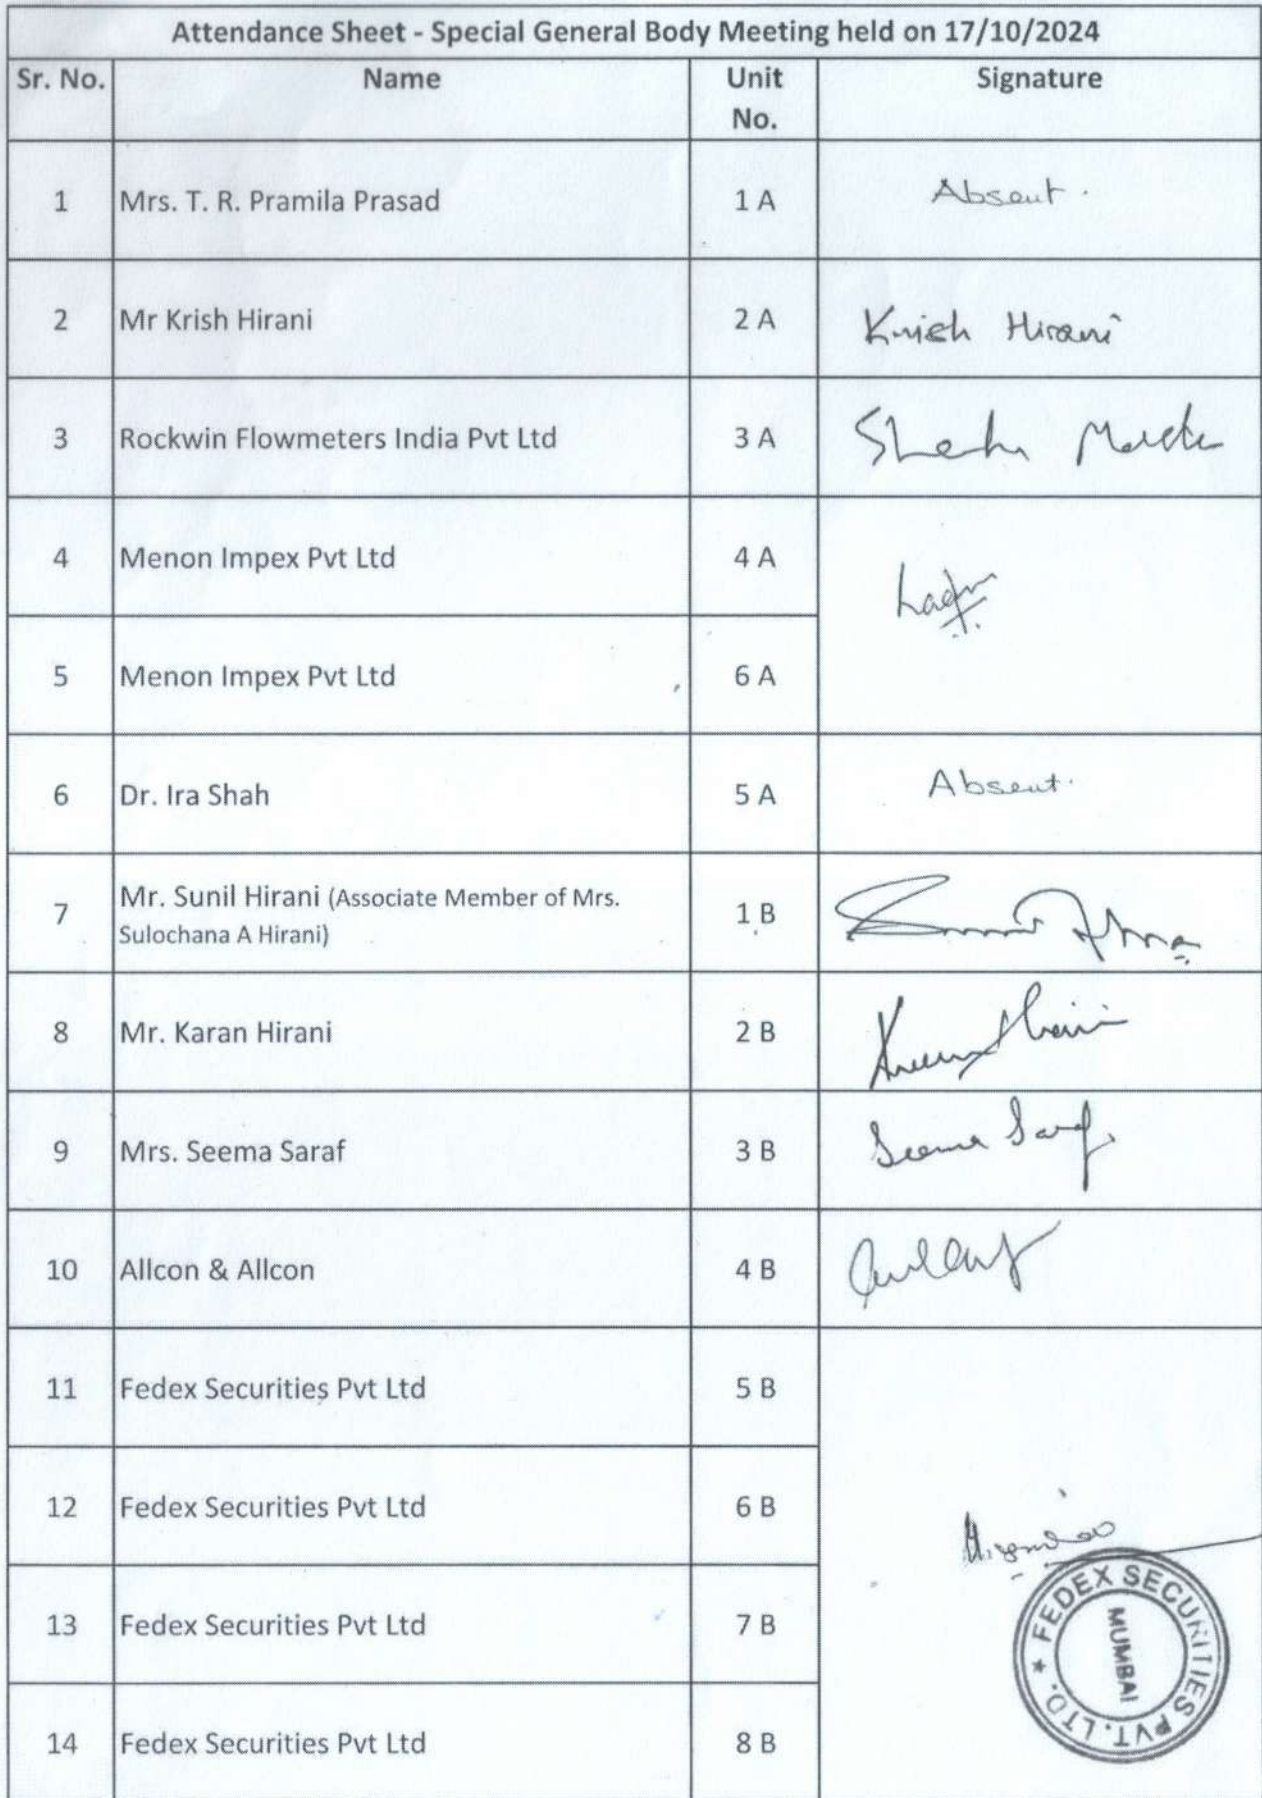 Attendance Sheet - Special General Body Meeting held on 17/10/2024
Sr. No. Name Unit No. Signature
1 Mrs. T. R. Pramila Prasad 1 A Absent.
2 Mr Krish Hirani 2 A Krish Hirani
3 Rockwin Flowmeters India Pvt Ltd 3 A
4 Menon Impex Pvt Ltd 4 A
5 Menon Impex Pvt Ltd 6 A
6 Dr. Ira Shah 5 A Absent.
7 Mr. Sunil Hirani (Associate Member of Mrs.
Sulochana A Hirani) 1 B
8 Mr. Karan Hirani 2 B
9 Mrs. Seema Saraf 3 B Seema Saraf
10 Allcon & Allcon 4 B
11 Fedex Securities Pvt Ltd 5 B
12 Fedex Securities Pvt Ltd 6 B
13 Fedex Securities Pvt Ltd 7 B
14 Fedex Securities Pvt Ltd 8 B
★ FEDEX SECURITIES PVT. LTD.
MUMBAI